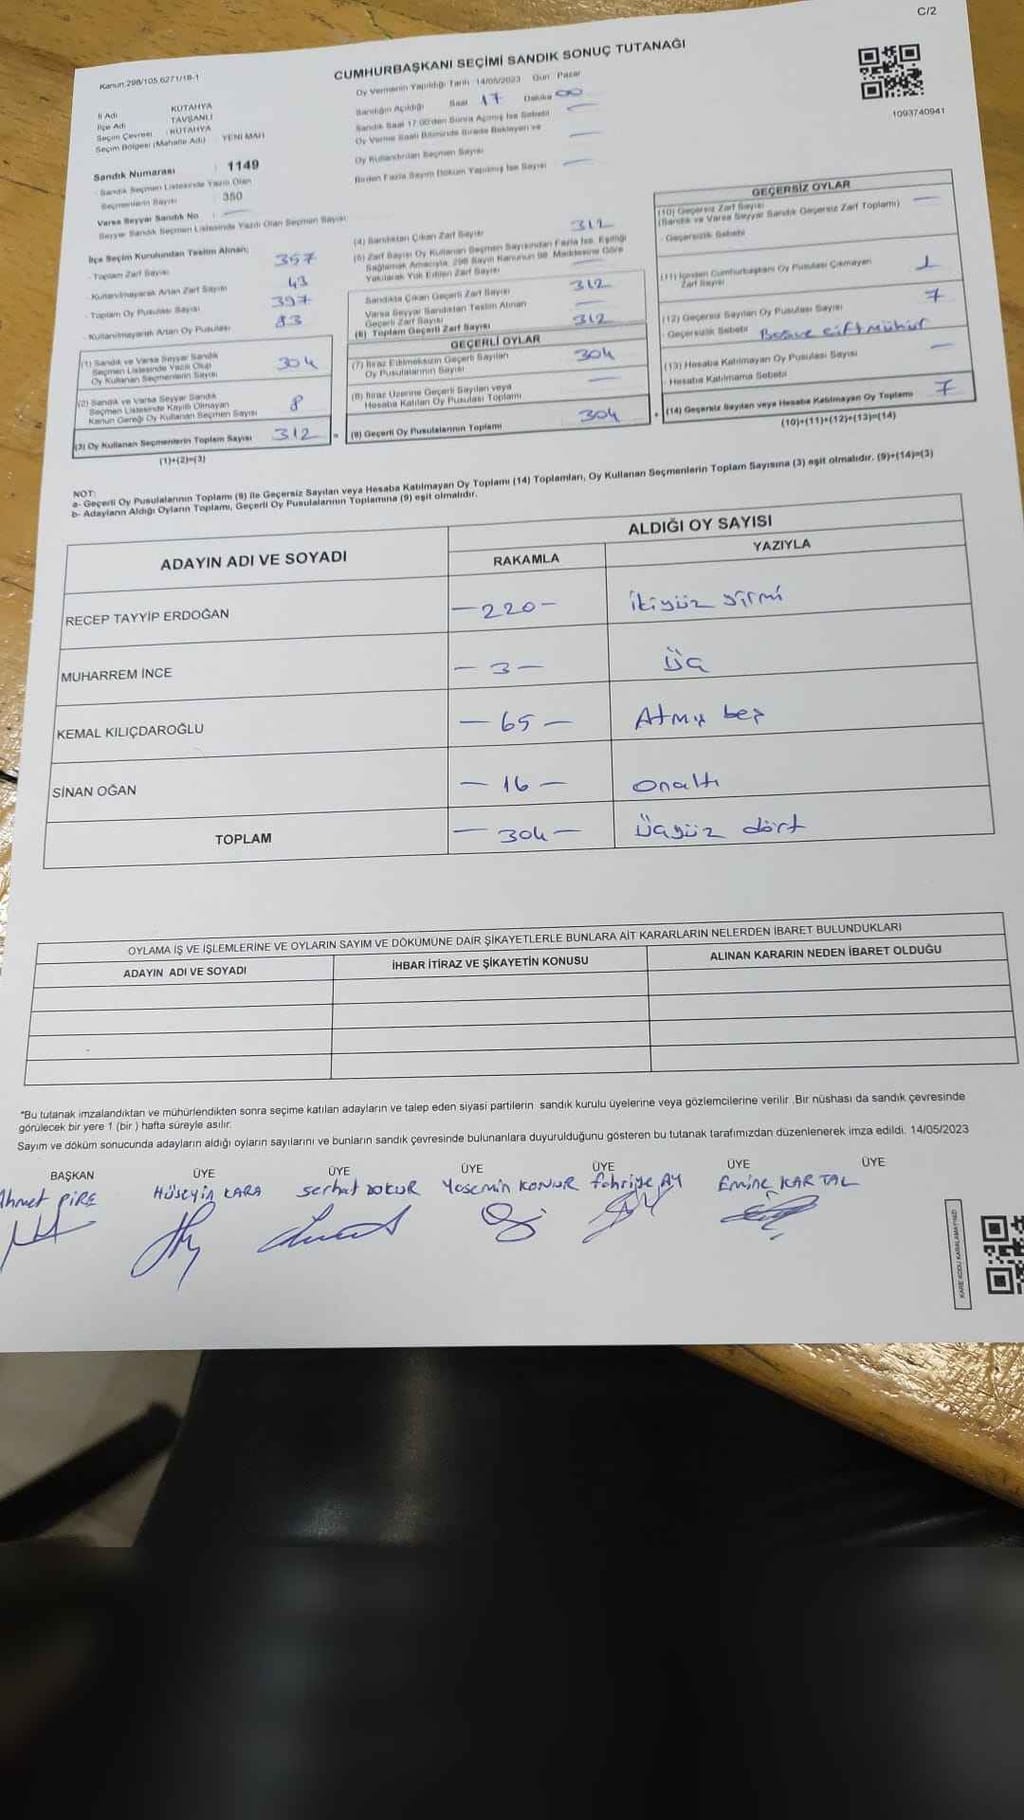 C/2
Kanun 298/105 6271/18-1
CUMHURBAŞKANI SEÇİMİ SANDIK SONUÇ TUTANAĞI
Oy Vermenin Yapıldığı Tarih 14/05/2023 Gün Pazar
Sandığın Açıldığı Saat 17 Dakika 00
Sandık Saat 17:00'den Sonra Açılmış İse Sebebi
Oy Verme Saati Bitiminde Sırada Bekleyen ve
Oy Kullandırılan Seçmen Sayısı
Birden Fazla Sayım Döküm Yapılmış İse Sayısı
1093740941
İl Adı KÜTAHYA
İlçe Adı TAVŞANLI
Seçim Çevresi KÜTAHYA
Seçim Bölgesi (Mahalle Adı) YENİ MAH
Sandık Numarası : 1149
- Sandık Seçmen Listesinde Yazılı Olan
Seçmenlerin Sayısı 350
Varsa Seyyar Sandık No
Seyyar Sandık Seçmen Listesinde Yazılı Olan Seçmen Sayısı
İlçe Seçim Kurulundan Teslim Alınan;
- Toplam Zarf Sayısı 357
- Kullanılmayarak Artan Zarf Sayısı 43
- Toplam Oy Pusulası Sayısı 397
- Kullanılmayarak Artan Oy Pusulası 83
(1) Sandık ve Varsa Seyyar Sandık
Seçmen Listesinde Yazılı Olup
Oy Kullanan Seçmenlerin Sayısı 304
(2) Sandık ve Varsa Seyyar Sandık
Seçmen Listesinde Kayıtlı Olmayan
Kanun Gereği Oy Kullanan Seçmen Sayısı 8
(3) Oy Kullanan Seçmenlerin Toplam Sayısı 312
(1)+(2)=(3)
(4) Sandıktan Çıkan Zarf Sayısı 312
(5) Zarf Sayısı Oy Kullanan Seçmen Sayısından Fazla İse, Eşitliği
Sağlamak Amacıyla, 298 Sayılı Kanunun 98. Maddesine Göre
Yakılarak Yok Edilen Zarf Sayısı
Sandıkta Çıkan Geçerli Zarf Sayısı 312
Varsa Seyyar Sandıktan Teslim Alınan
Geçerli Zarf Sayısı
(6) Toplam Geçerli Zarf Sayısı 312
GEÇERLİ OYLAR
(7) İtiraz Edilmeksizin Geçerli Sayılan
Oy Pusulalarının Sayısı 304
(8) İtiraz Üzerine Geçerli Sayılan veya
Hesaba Katılan Oy Pusulası Toplamı
(9) Geçerli Oy Pusulalarının Toplamı 304
GEÇERSİZ OYLAR
(10) Geçersiz Zarf Sayısı
(Sandık ve Varsa Seyyar Sandık Geçersiz Zarf Toplamı)
- Geçersizlik Sebebi
(11) İçinden Cumhurbaşkanı Oy Pusulası Çıkmayan
Zarf Sayısı 1
(12) Geçersiz Sayılan Oy Pusulası Sayısı 7
- Geçersizlik Sebebi Boş ve çift mühür
(13) Hesaba Katılmayan Oy Pusulası Sayısı
- Hesaba Katılmama Sebebi
(14) Geçersiz Sayılan veya Hesaba Katılmayan Oy Toplamı 7
(10)+(11)+(12)+(13)=(14)
NOT:
a- Geçerli Oy Pusulalarının Toplamı (9) ile Geçersiz Sayılan veya Hesaba Katılmayan Oy Toplamı (14) Toplamları, Oy Kullanan Seçmenlerin Toplam Sayısına (3) eşit olmalıdır. (9)+(14)=(3)
b- Adayların Aldığı Oyların Toplamı, Geçerli Oy Pusulalarının Toplamına (9) eşit olmalıdır.
ADAYIN ADI VE SOYADI
ALDIĞI OY SAYISI
RAKAMLA YAZIYLA
RECEP TAYYİP ERDOĞAN -220- ikiyüz yirmi
MUHARREM İNCE -3- Üç
KEMAL KILIÇDAROĞLU -65- Atmış beş
SİNAN OĞAN -16- onaltı
TOPLAM -304- Üçyüz dört
OYLAMA İŞ VE İŞLEMLERİNE VE OYLARIN SAYIM VE DÖKÜMÜNE DAİR ŞİKAYETLERLE BUNLARA AİT KARARLARIN NELERDEN İBARET BULUNDUKLARI
ADAYIN ADI VE SOYADI İHBAR İTİRAZ VE ŞİKAYETİN KONUSU ALINAN KARARIN NEDEN İBARET OLDUĞU
*Bu tutanak imzalandıktan ve mühürlendikten sonra seçime katılan adayların ve talep eden siyasi partilerin sandık kurulu üyelerine veya gözlemcilerine verilir .Bir nüshası da sandık çevresinde
görülecek bir yere 1 (bir ) hafta süreyle asılır.
Sayım ve döküm sonucunda adayların aldığı oyların sayılarını ve bunların sandık çevresinde bulunanlara duyurulduğunu gösteren bu tutanak tarafımızdan düzenlenerek imza edildi. 14/05/2023
BAŞKAN ÜYE ÜYE ÜYE ÜYE ÜYE ÜYE
Ahmet PİRE Hüseyin KARA Serhat DOKUR Yasemin KONUR fahriye AY Emine KARTAL
KARE KODU KARALAMAYINIZ!